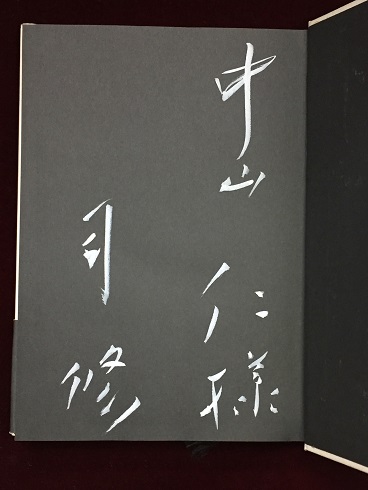 中山 仁様
司 修